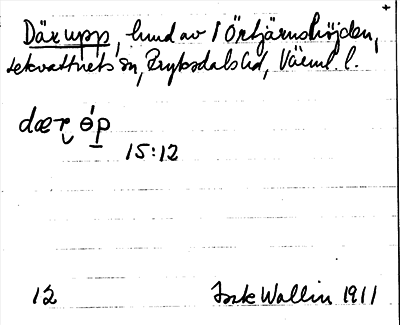 Där upp, lund av Örtjärnshöjden,
Lekvattnets sn, Fryksdals hd, Värml. l.
dær ö́p
15:12
12 Wallin 1911